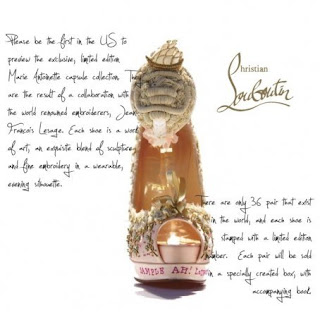 Please be the first in the US to
preview the exclusive, limited edition
Marie Antoinette capsule collection. They
are the result of a collaboration with
the world renowned embroiderers, Jean-
Francois Lesage. Each shoe is a work
of art, an exquisite blend of sculpture
and fine embroidery in a wearable,
evening silhouette.
Christian
Louboutin
There are only 36 pair that exist
in the world, and each shoe is
stamped with a limited edition
number. Each pair will be sold
in a specially created box, with
accompanying book.
SAMPLE AH!